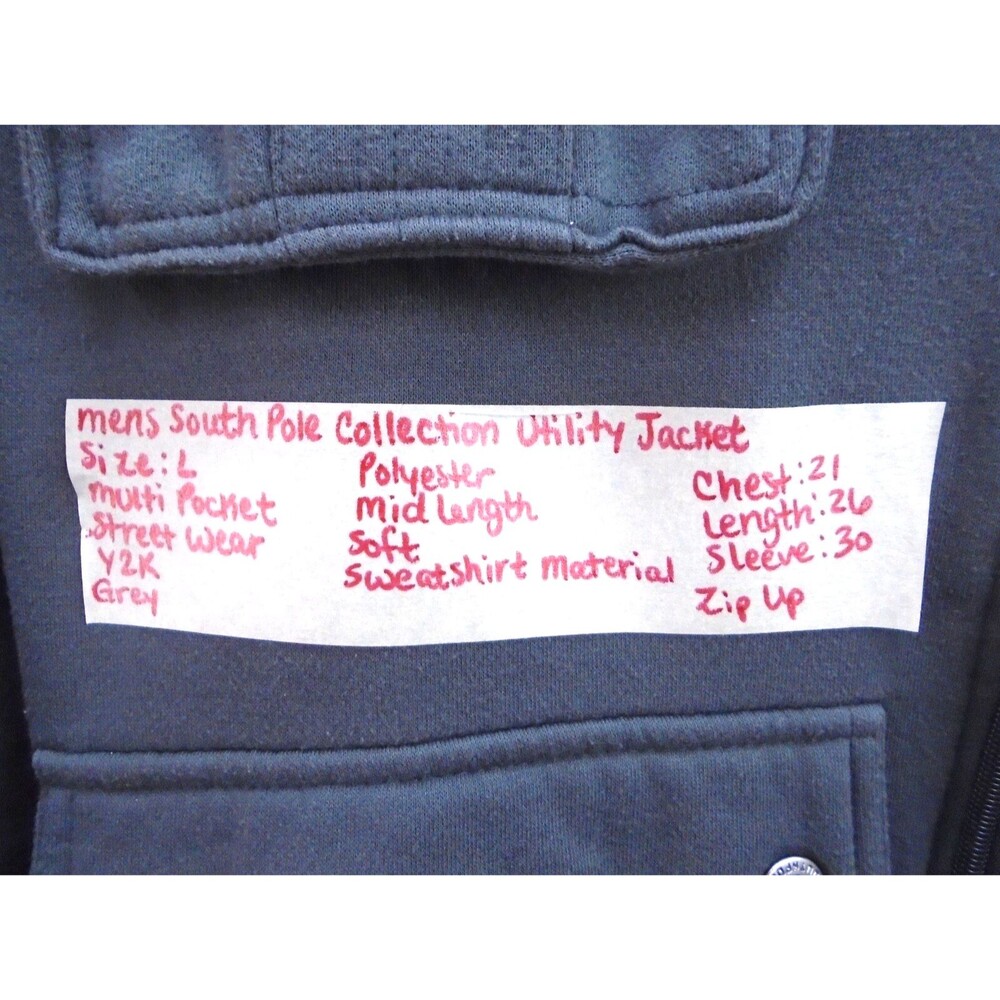 mens South Pole Collection Utility Jacket
Size: L
Multi Pocket
Street Wear
Y2K
Grey
Polyester
Mid Length
Soft
Sweatshirt Material
Chest: 21
Length: 26
Sleeve: 30
Zip Up